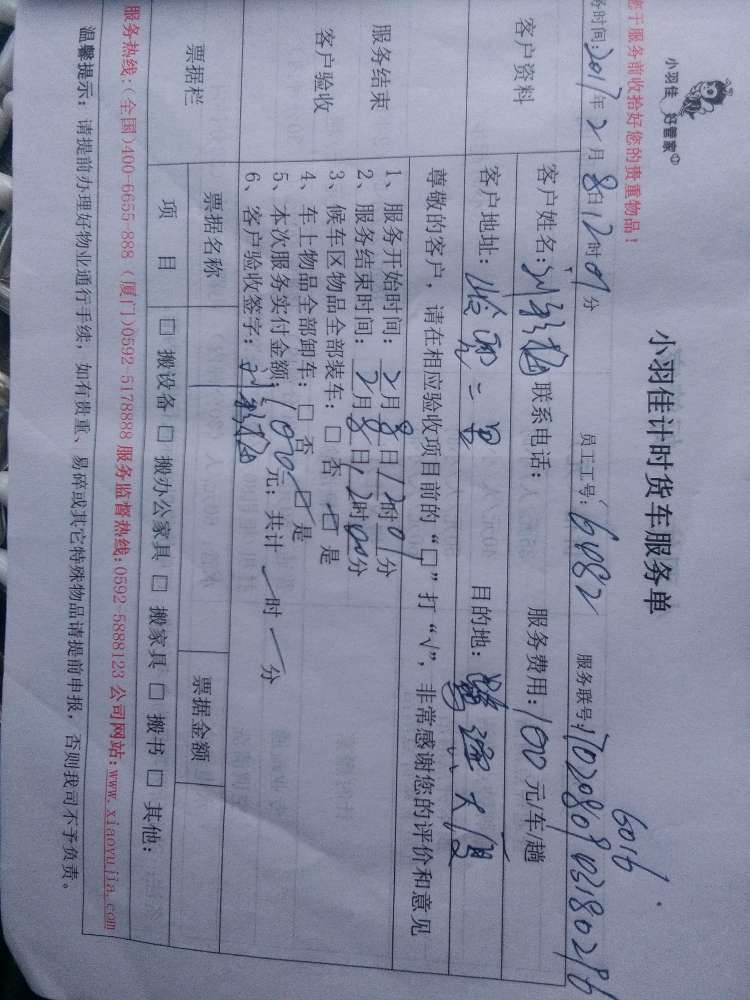 于服务前收拾好您的贵重物品！
小羽佳 好管家
小羽佳计时货车服务单
务时间：2017年2月8日12时01分 员工工号：6482 服务联号：
6016
客户资料
客户姓名： 联系电话： 服务费用：100元/车/趟
客户地址： 目的地：大厦
服务结束
客户验收
尊敬的客户，请在相应验收项目前的“口”打“√”，非常感谢您的评价和意见
1、服务开始时间：2月8日12时01分
2、服务结束时间：2月8日12时00分
3、候车区物品全部装车：□ 否 □ 是
4、车上物品全部卸车：□ 否 □ 是
5、本次服务实付金额：100元；共计 时 分
6、客户验收签字：
票据栏
票据名称 票据金额
项 目 □ 搬设备 □ 搬办公家具 □ 搬家具 □ 搬书 □ 其他：
服务热线：（全国）400-6655-888 （厦门）0592-5178888 服务监督热线：0592-5888123 公司网站：www.xiaoyujia.com
温馨提示：请提前办理好物业通行手续，如有贵重、易碎或其它特殊物品请提前申报，否则我司不予负责。